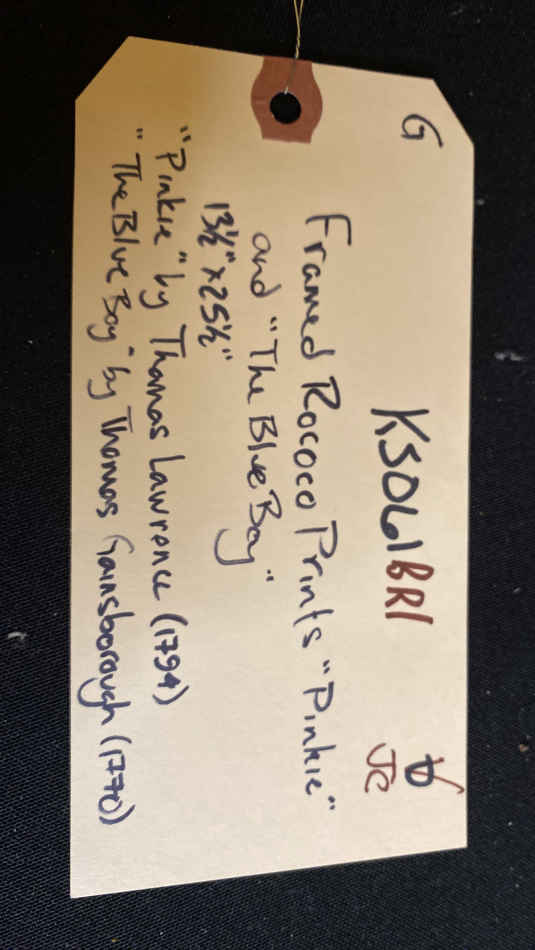 G
K5061BRI
JC
Framed Rococo Prints "Pinkie"
and "The Blue Boy"
13½" x 25½"
"Pinkie" by Thomas Lawrence (1794)
"The Blue Boy" by Thomas Gainsborough (1770)